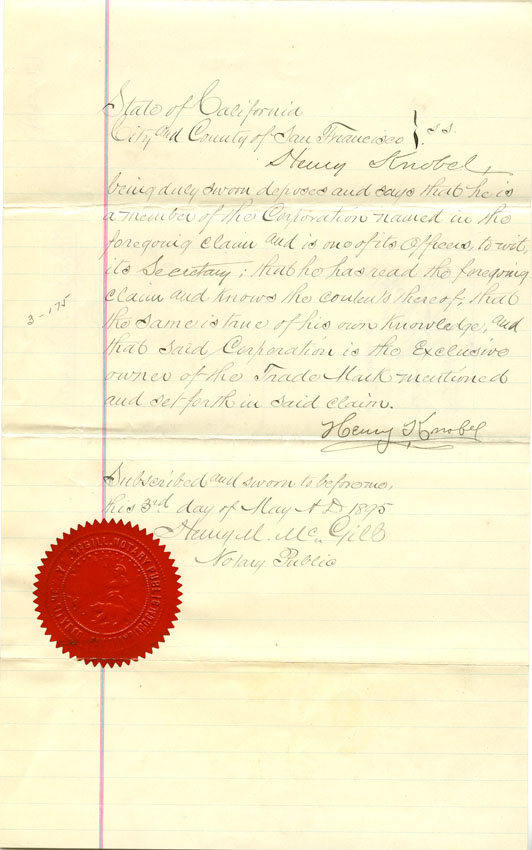 State of California
City and County of San Francisco } s.s.
Henry Knobel,
being duly sworn deposes and says that he is
a member of the Corporation named in the
foregoing claim and is one of its Officers, to wit,
its Secretary; that he has read the foregoing
claim and knows the contents thereof; that
the same is true of his own knowledge, and
that said Corporation is the Exclusive
owner of the Trade Mark mentioned
and set forth in said claim.
3-175
Henry Knobel
Subscribed and sworn to before me,
this 3rd day of May A D 1895
Henry M. Mc. Gill
Notary Public
NOTARY PUBLIC